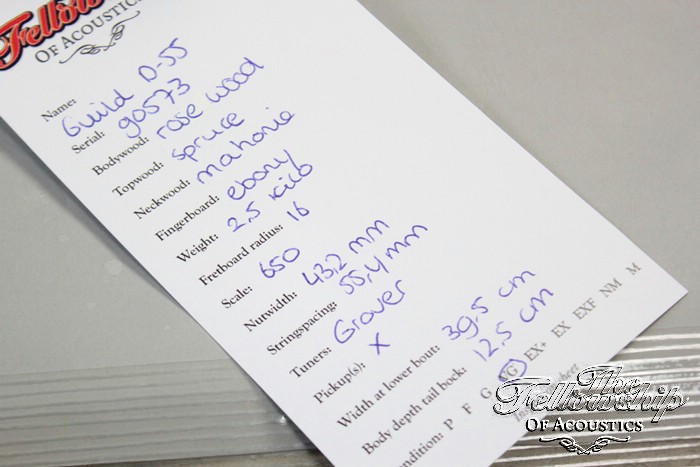 Fellowship
OF ACOUSTICS
Name: Guild D-55
Serial: 90573
Bodywood: rose wood
Topwood: spruce
Neckwood: mahonie
Fingerboard: ebony
Weight: 2,5 kilo
Fretboard radius: 16
Scale: 650
Nutwidth: 43,2 mm
Stringspacing: 55,4 mm
Tuners: Grover
Pickup(s): X
Width at lower bout: 39.5 cm
Body depth tail bock: 12.5 cm
ondition: P F G VG EX+ EX EXF NM M
The
Fellowship
OF ACOUSTICS